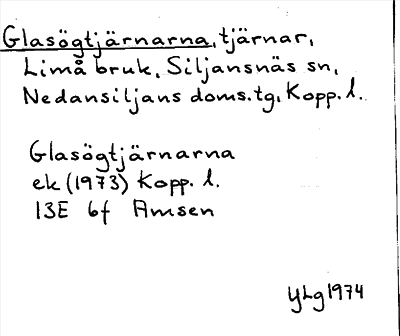 Glasögtjärnarna, tjärnar,
Limå bruk, Siljansnäs sn,
Nedansiljans doms.tg, Kopp. l.
Glasögtjärnarna
ek (1973) Kopp. l.
13E 6f Amsen
YLg 1974